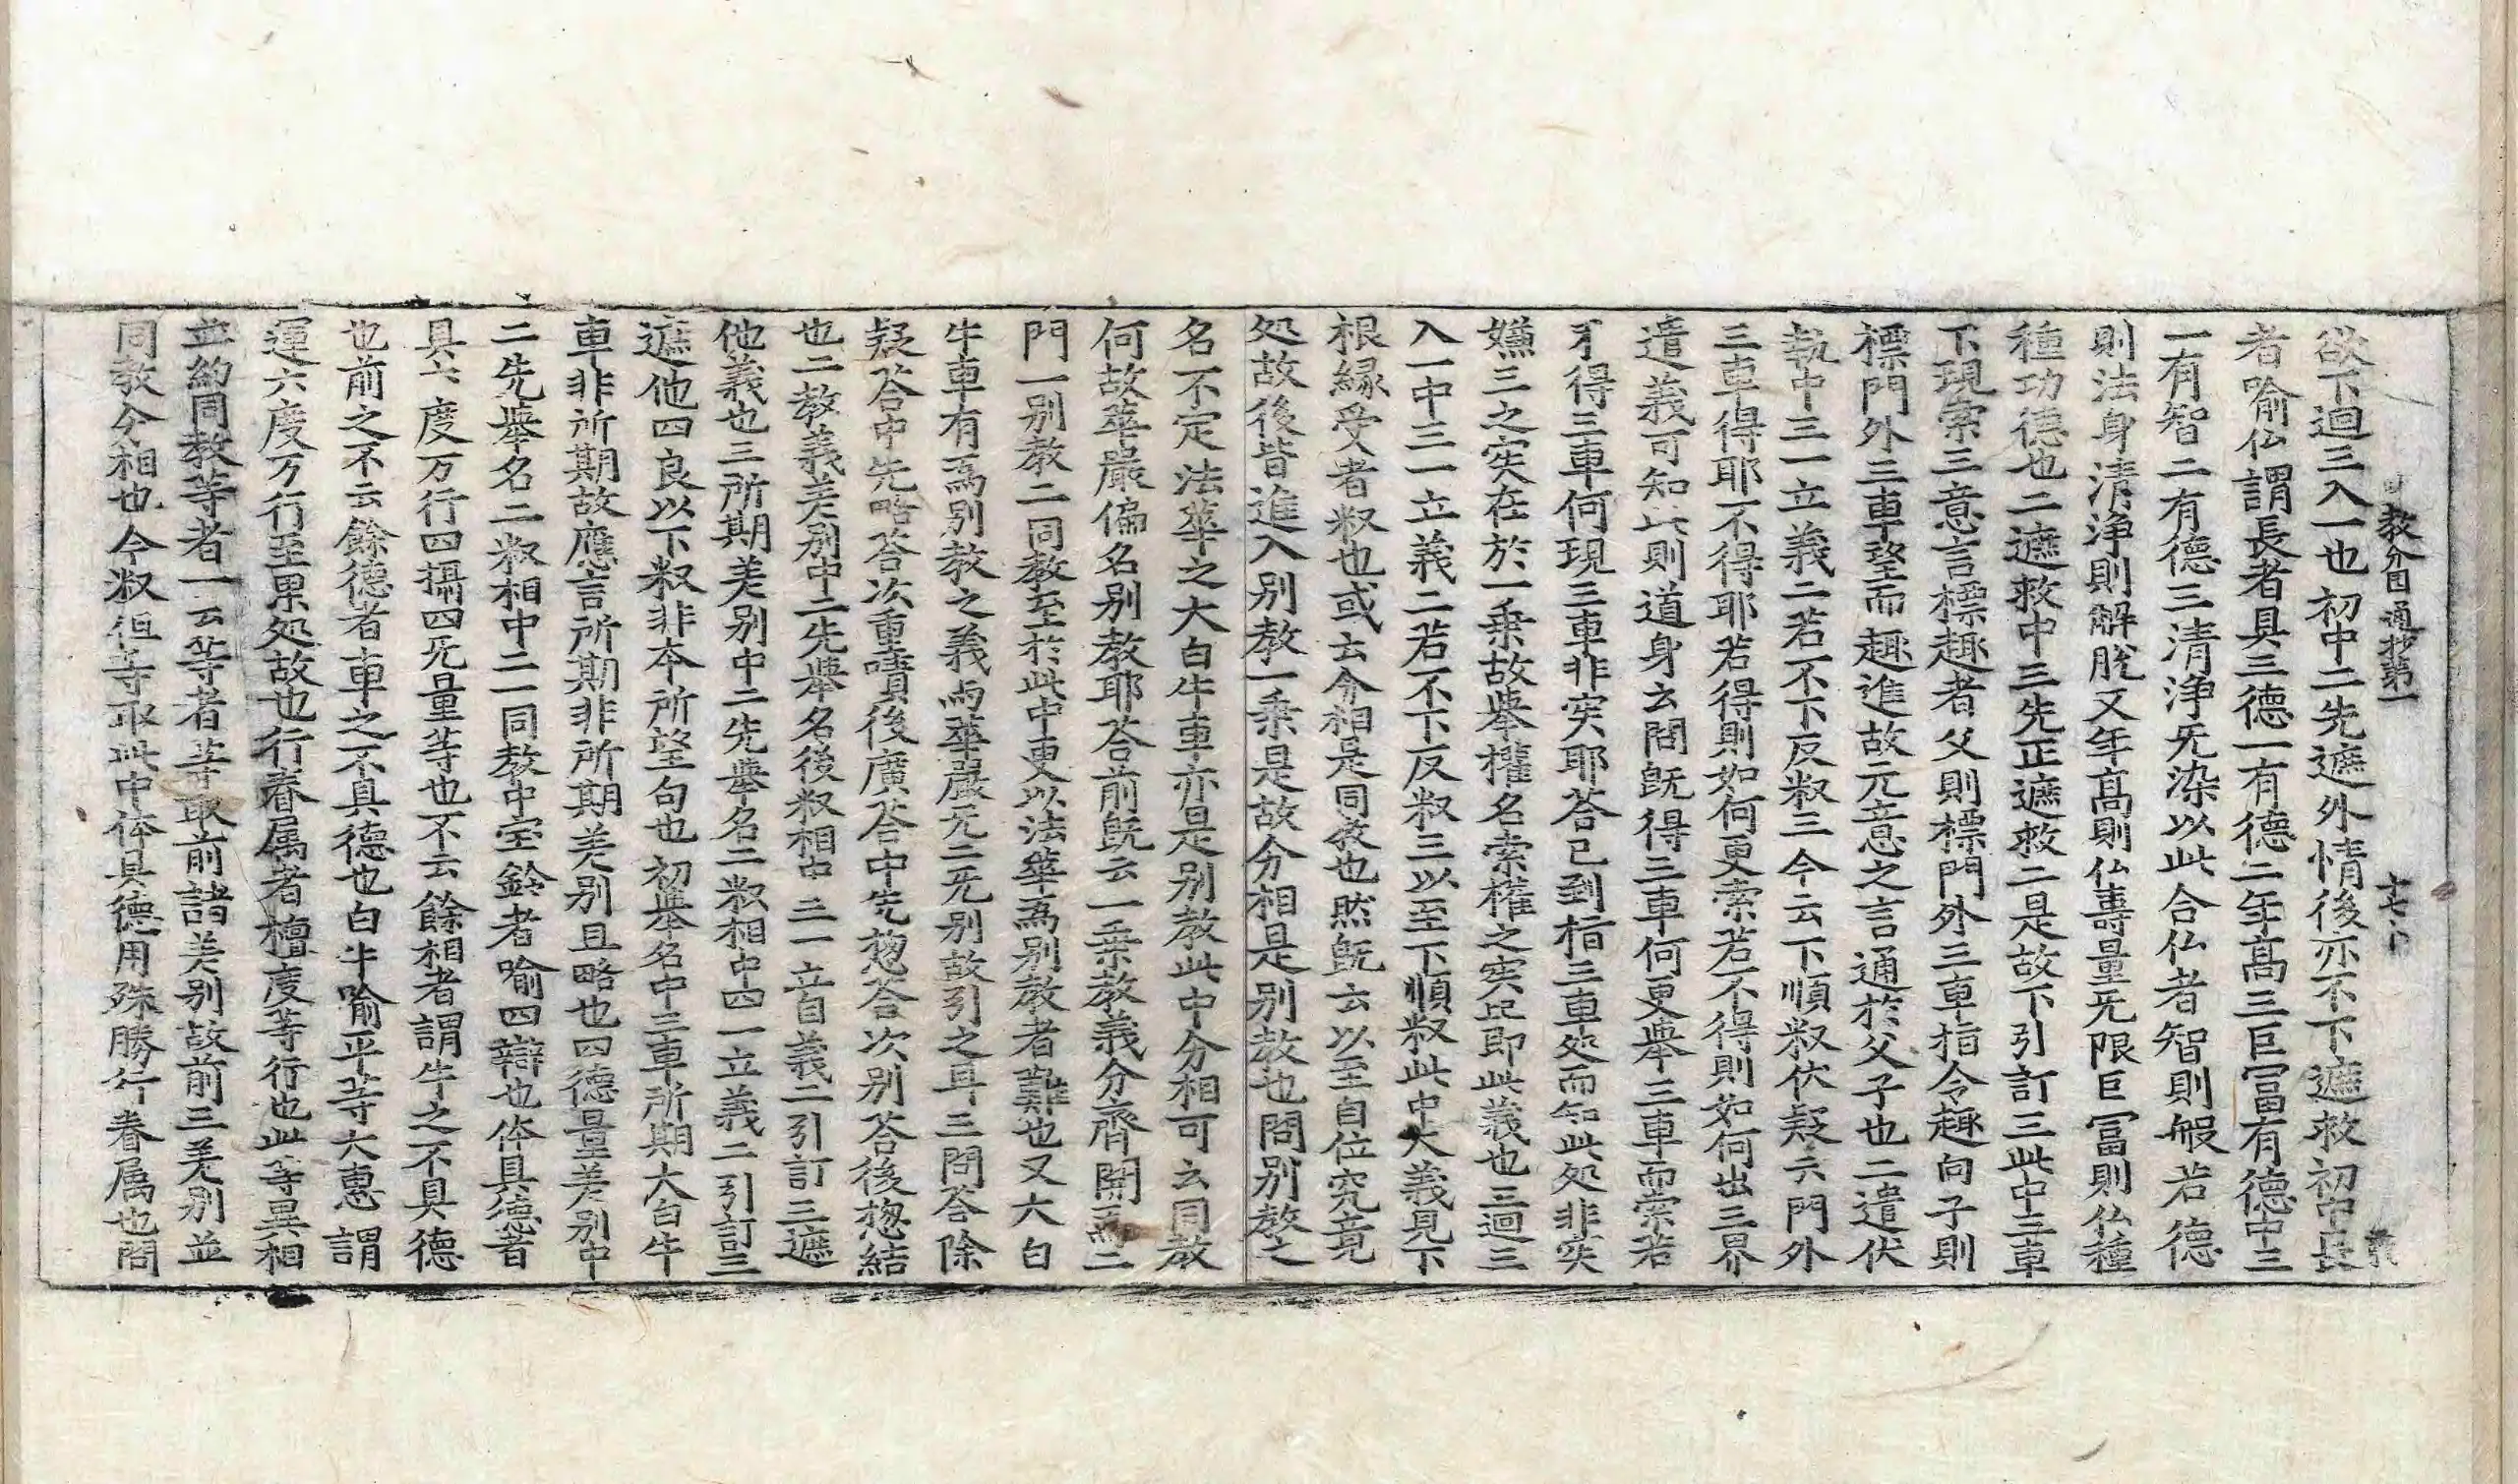 教分円通抄第一
欲下迴三入一也初中二先遮外情後亦不下遮救初中長
者喻仏謂長者具三德一有德二年髙三巨冨有德中三
一有智二有德三清淨旡染以此合仏者智則般若德
則法身清淨則解脫又年髙則仏壽量旡限巨冨則仏種
種功德也二遮救中三先正遮救二是故下引訂三此中三車
下現索三意言標趣者父則標門外三車指令趣向子則
標門外三車望而趣進故元意之言通於父子也二遣伏
執中三一立義二若不下反䆁三今云下順䆁伏疑云門外
三車得耶不得耶若得則如何更索若不得則如何出三界
遣義可知此則道身云問旣得三車何更舉三車而索若
不得三車何現三車非实耶荅已到指三車处而知此処非实
嫌三之实在於一乗故舉權名索權之实此即此義也三迴三
入一中三一立義二若不下反䆁三以至下順䆁此中大義見下
根緣受者䆁也或云分相是同教也然旣云以至自位究竟
処故後皆進入别教一乗是故分相是别教也問别教之
名不定法華之大白牛車亦是别教此中分相可云同教
何故華嚴偏名别教耶荅前旣云一乗教義分齊開為二
門一别教二同教至於此中更以法華為别教者難也又大白
牛車有為别教之義而華嚴旡二旡别故引之耳三問荅除
疑荅中先略荅次重嘖後廣荅中先揔荅次别荅後揔結
也二教義差别中二先舉名後䆁相中三一立自義二引訂三遮
他義也三所期差别中二先舉名二䆁相中四一立義二引訂三
遮他四良以下䆁非本所望句也初舉名中三車所期大白牛
車非所期故應言所期非所期差别且略也四德量差别中
二先舉名二䆁相中二一同教中宝鈴者喻四辯也体具德者
具六度万行四攝四旡量等也不云餘相者謂牛之不具德
也前之不云餘德者車之不具德也白牛喻平等大惠謂
運六度万行至果処故也行眷属者檀度等行也此等異相
並約同教等者一云等者等取前諸差别故前三差别並
同教分相也今䆁但等取此中体具德用殊勝行眷属也問